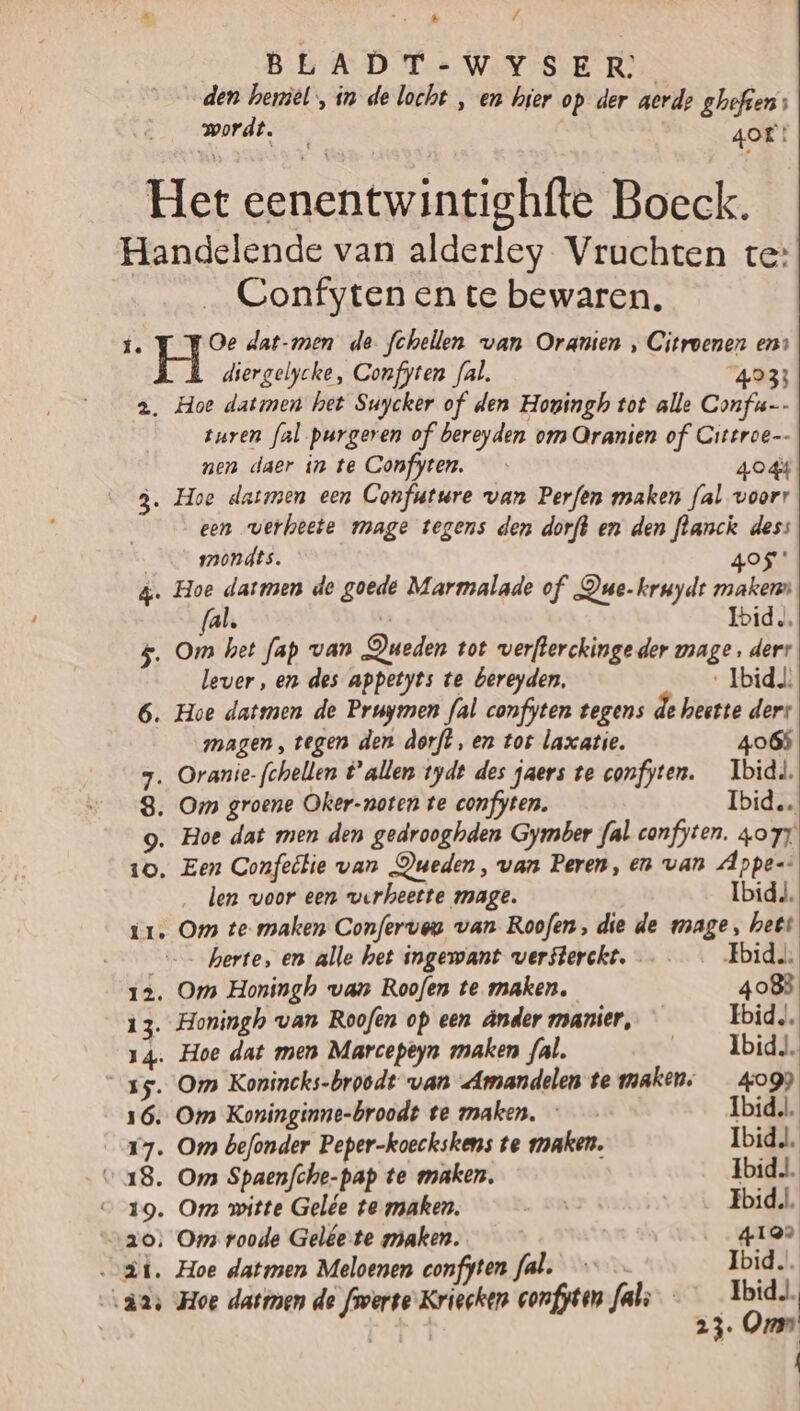 BLADT-WYSER.
den hemel, in de locht, en hier op der aerde ghesien
wordt. 401
Het eenentwintighste Boeck.
Handelende van alderley Vruchten te
Confyten en te bewaren.
1. HOe dat-men de schellen van Oranien, Citroenen en
diergelycke, Confyten sal. 403
2. Hoe datmen het Suycker of den Honingh tot alle Confu-
turen sal purgeren of bereyden om Oranien of Cittroe-
nen daer in te Confyten. 404
3. Hoe datmen een Confuture van Persen maken sal voor
een verheete mage tegens den dorst en den stanck des
mondts. 405
4. Hoe datmen de goede Marmalade of Que-kruydt maken
sal. Ibid.
5. Om het sap van Queden tot versterckinge der mage, der
lever, en des appetyts te bereyden. Ibid.
6. Hoe datmen de Pruymen sal confyten tegens de heette der
magen, tegen den dorst, en tot laxatie. 406
7. Oranie-schellen t'allen tydt des jaers te confyten. Ibid.
8. Om groene Oker-noten te confyten. Ibid.
9. Hoe dat men den gedrooghden Gymber sal confyten. 407
10. Een Confectie van Queden, van Peren, en van Appe-
len voor een verheette mage. Ibid.
11. Om te maken Conserven van Roosen, die de mage, het
herte, en alle het ingewant versterckt. Ibid.
12. Om Honingh van Roosen te maken. 408
13. Honingh van Roosen op een ander manier, Ibid.
14. Hoe dat men Marcepeyn maken sal. Ibid.
15. Om Konincks-broodt van Amandelen te maken. 409
16. Om Koninginne-broodt te maken. Ibid.
17. Om besonder Peper-koeckskens te maken. Ibid.
18. Om Spaensche-pap te maken. Ibid.
19. Om witte Gelée te maken. Ibid.
20. Om roode Gelée te maken. 410
21. Hoe datmen Meloenen confyten sal. Ibid.
22. Hoe datmen de swerte Kriecken confyten sal. Ibid.
23. Om